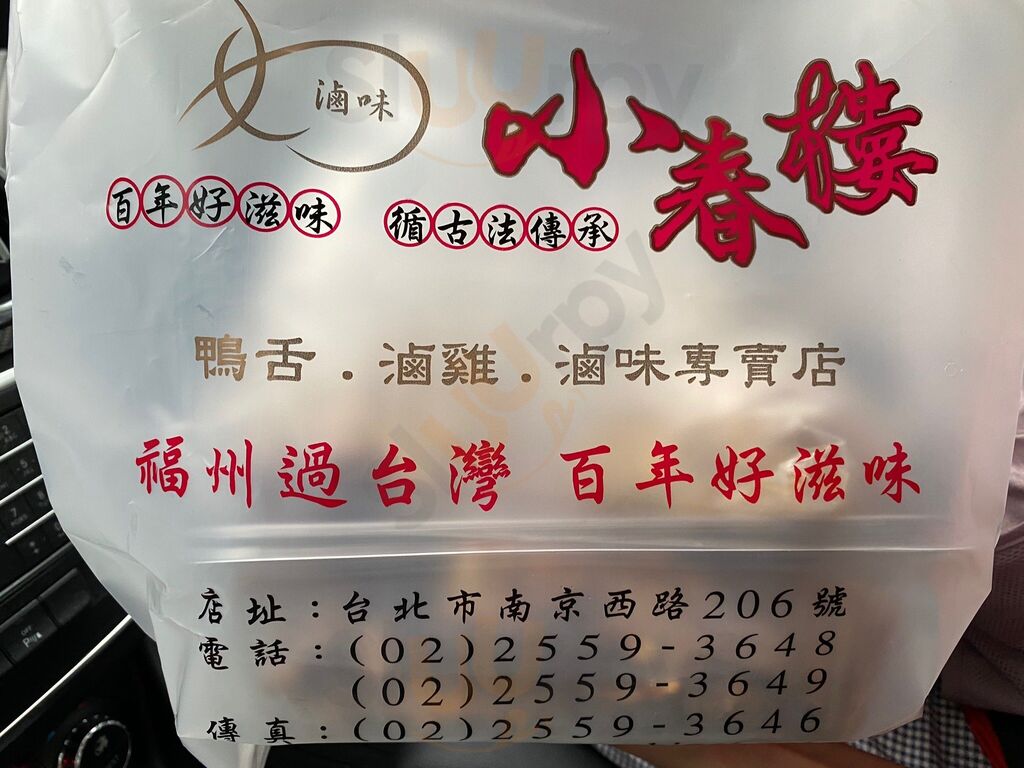 滷味
小春樓
百年好滋味 循古法傳承
鴨舌.滷雞.滷味專賣店
福州過台灣 百年好滋味
店址:台北市南京西路206號
電話:(02)2559-3648
(02)2559-3649
傳真:(02)2559-3646
sluurpy
sluurpy
sluurpy